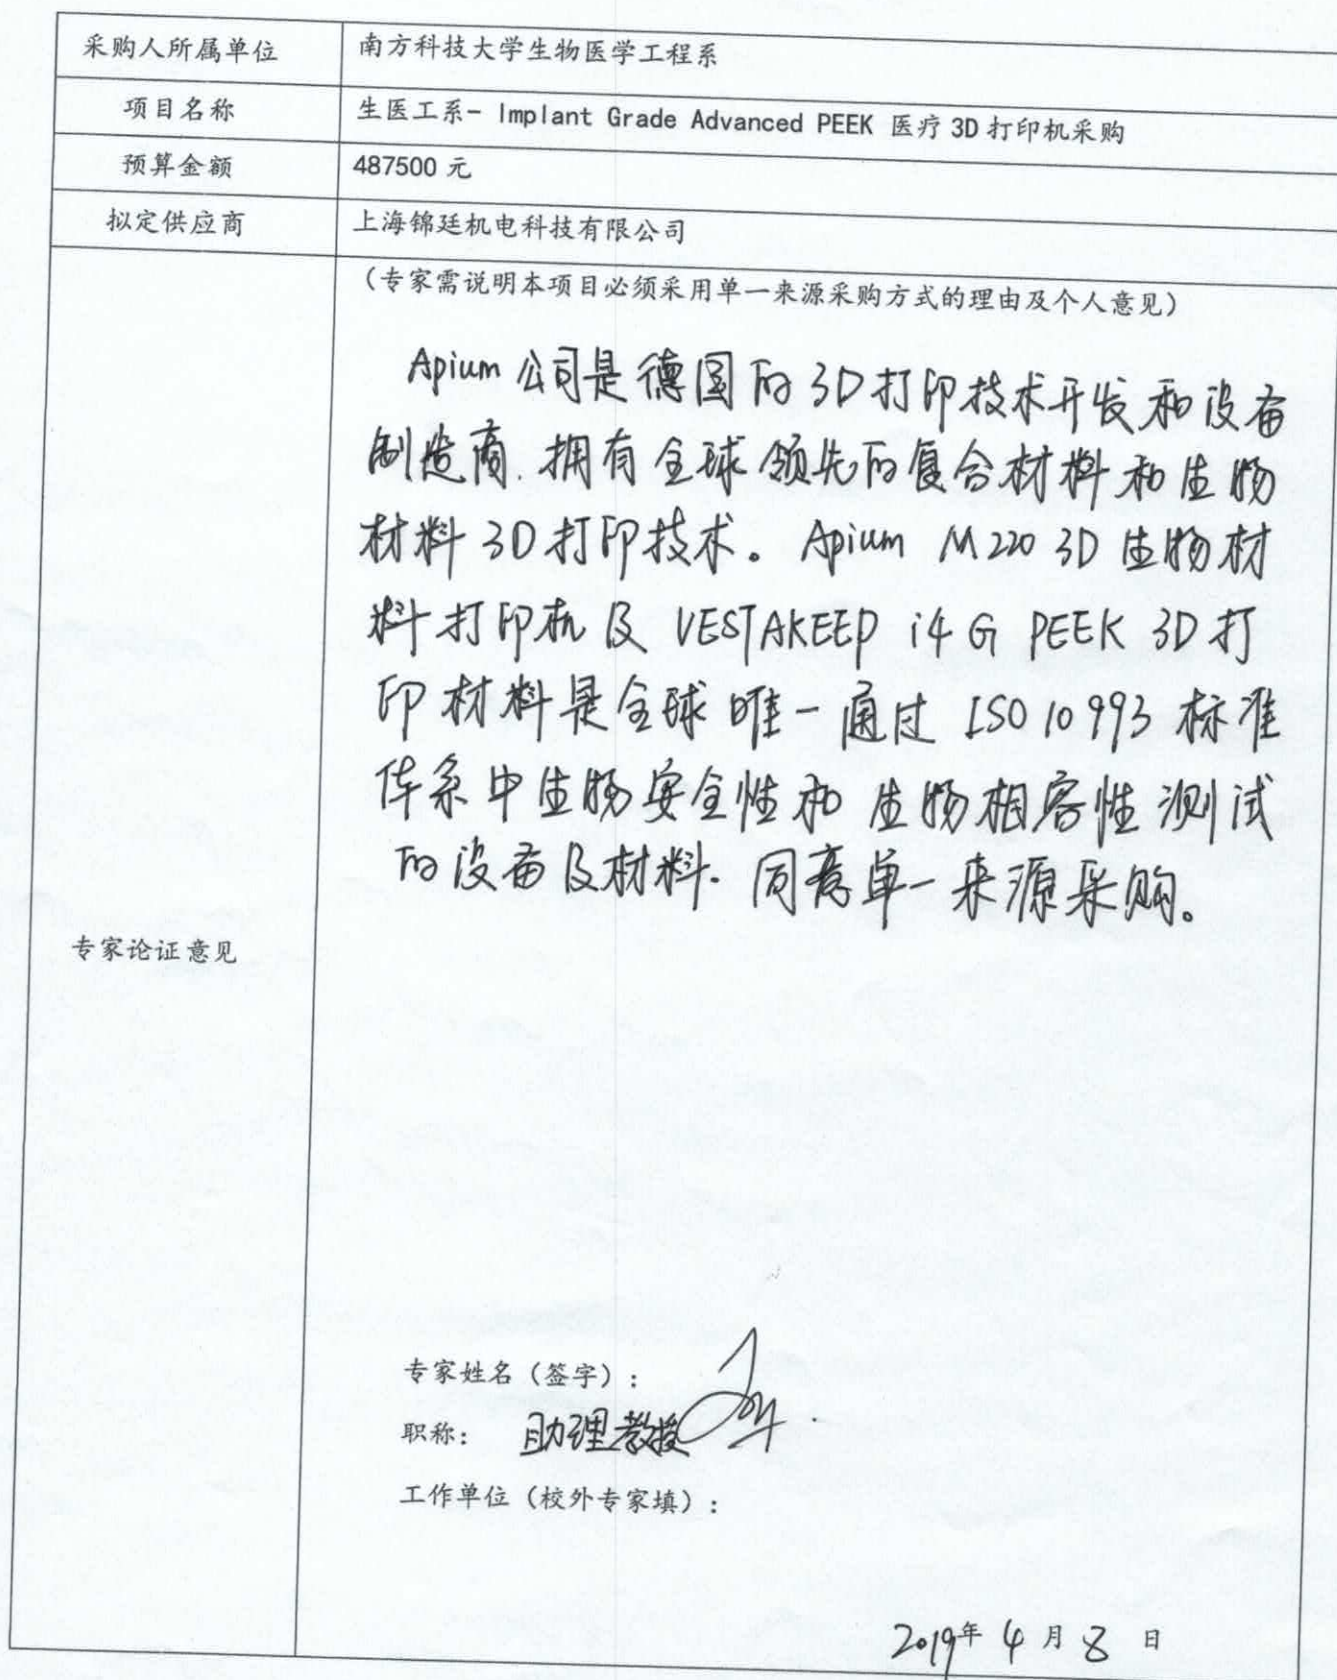 采购人所属单位 南方科技大学生物医学工程系
项目名称 生医工系- Implant Grade Advanced PEEK 医疗 3D 打印机采购
预算金额 487500 元
拟定供应商 上海锦廷机电科技有限公司
（专家需说明本项目必须采用单一来源采购方式的理由及个人意见）
Apium 公司是德国的3D打印技术开发和设备
制造商.拥有全球领先的复合材料和生物
材料3D打印技术。Apium M220 3D 生物材
料打印机及 VESTAKEEP i4 G PEEK 3D打
印材料是全球唯一通过 ISO 10993 标准
体系中生物安全性和生物相容性测试
的设备及材料.同意单一来源采购。
专家论证意见
专家姓名（签字）：
职称： 助理教授
工作单位（校外专家填）：
2019年 4 月 8 日